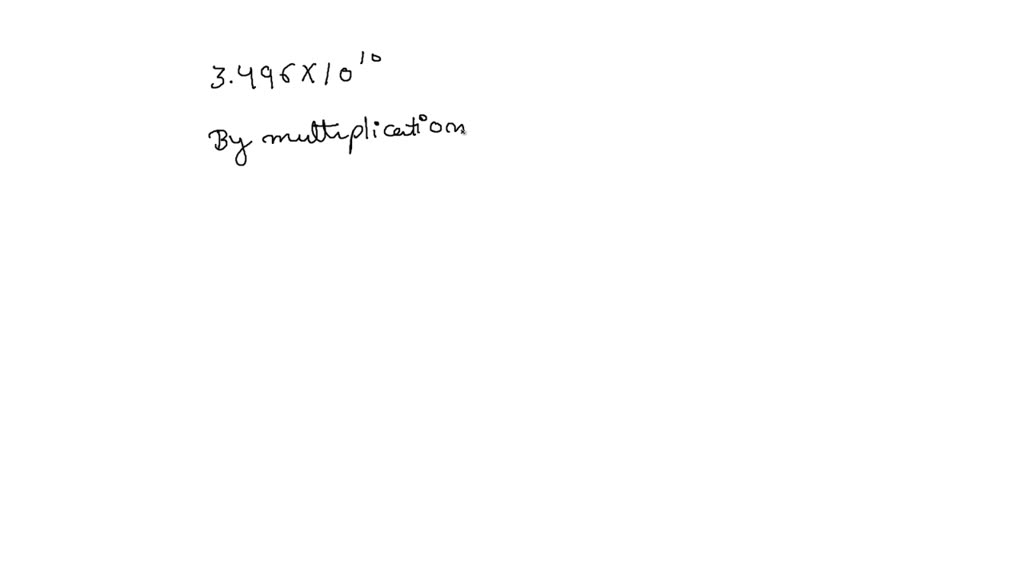 3.496 X 10^10
By multiplication